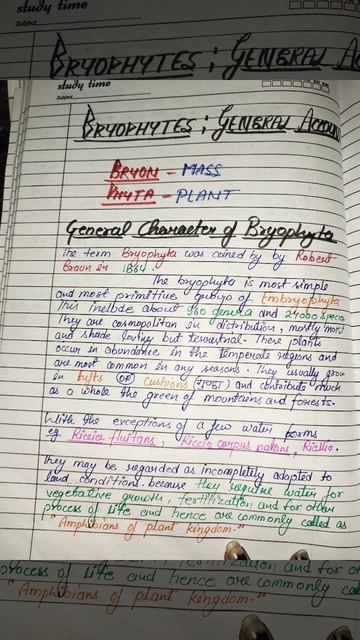 study time
BRYOPHYTES ; GENERAL A
study time
Subject
BRYOPHYTES ; GENERAL Accoun
BRYON - MASS
PHYTA - PLANT
General Character of Bryophyta
The term Bryophyta was coined by by Robert
Braun in 1864.
The bryophyta is most simple
and most primitive group of Embryophyta
This include about 960 genera and 24000 species
They are cosmopolitan in distribution, mostly moist
and shade loving but terrestrial. These plants
occur in abundance in the temperate regions and
are most common in any seasons. They usually grow
in tufts OR cushions and contribute much
as a whole the green of mountains and forests.
With the exceptions of a few water forms
eg Riccia fluitans, Riccio carpus natans, Riellia.
They may be regarded as incompletely adopted to
land conditions. because they require water for
vegetative growth, fertilization and for other
process of life and hence are commonly called as
"Amphibians of plant kingdom."
fertilization and for ot
process of life and hence are commonly cal
"Amphibians of plant kingdom."